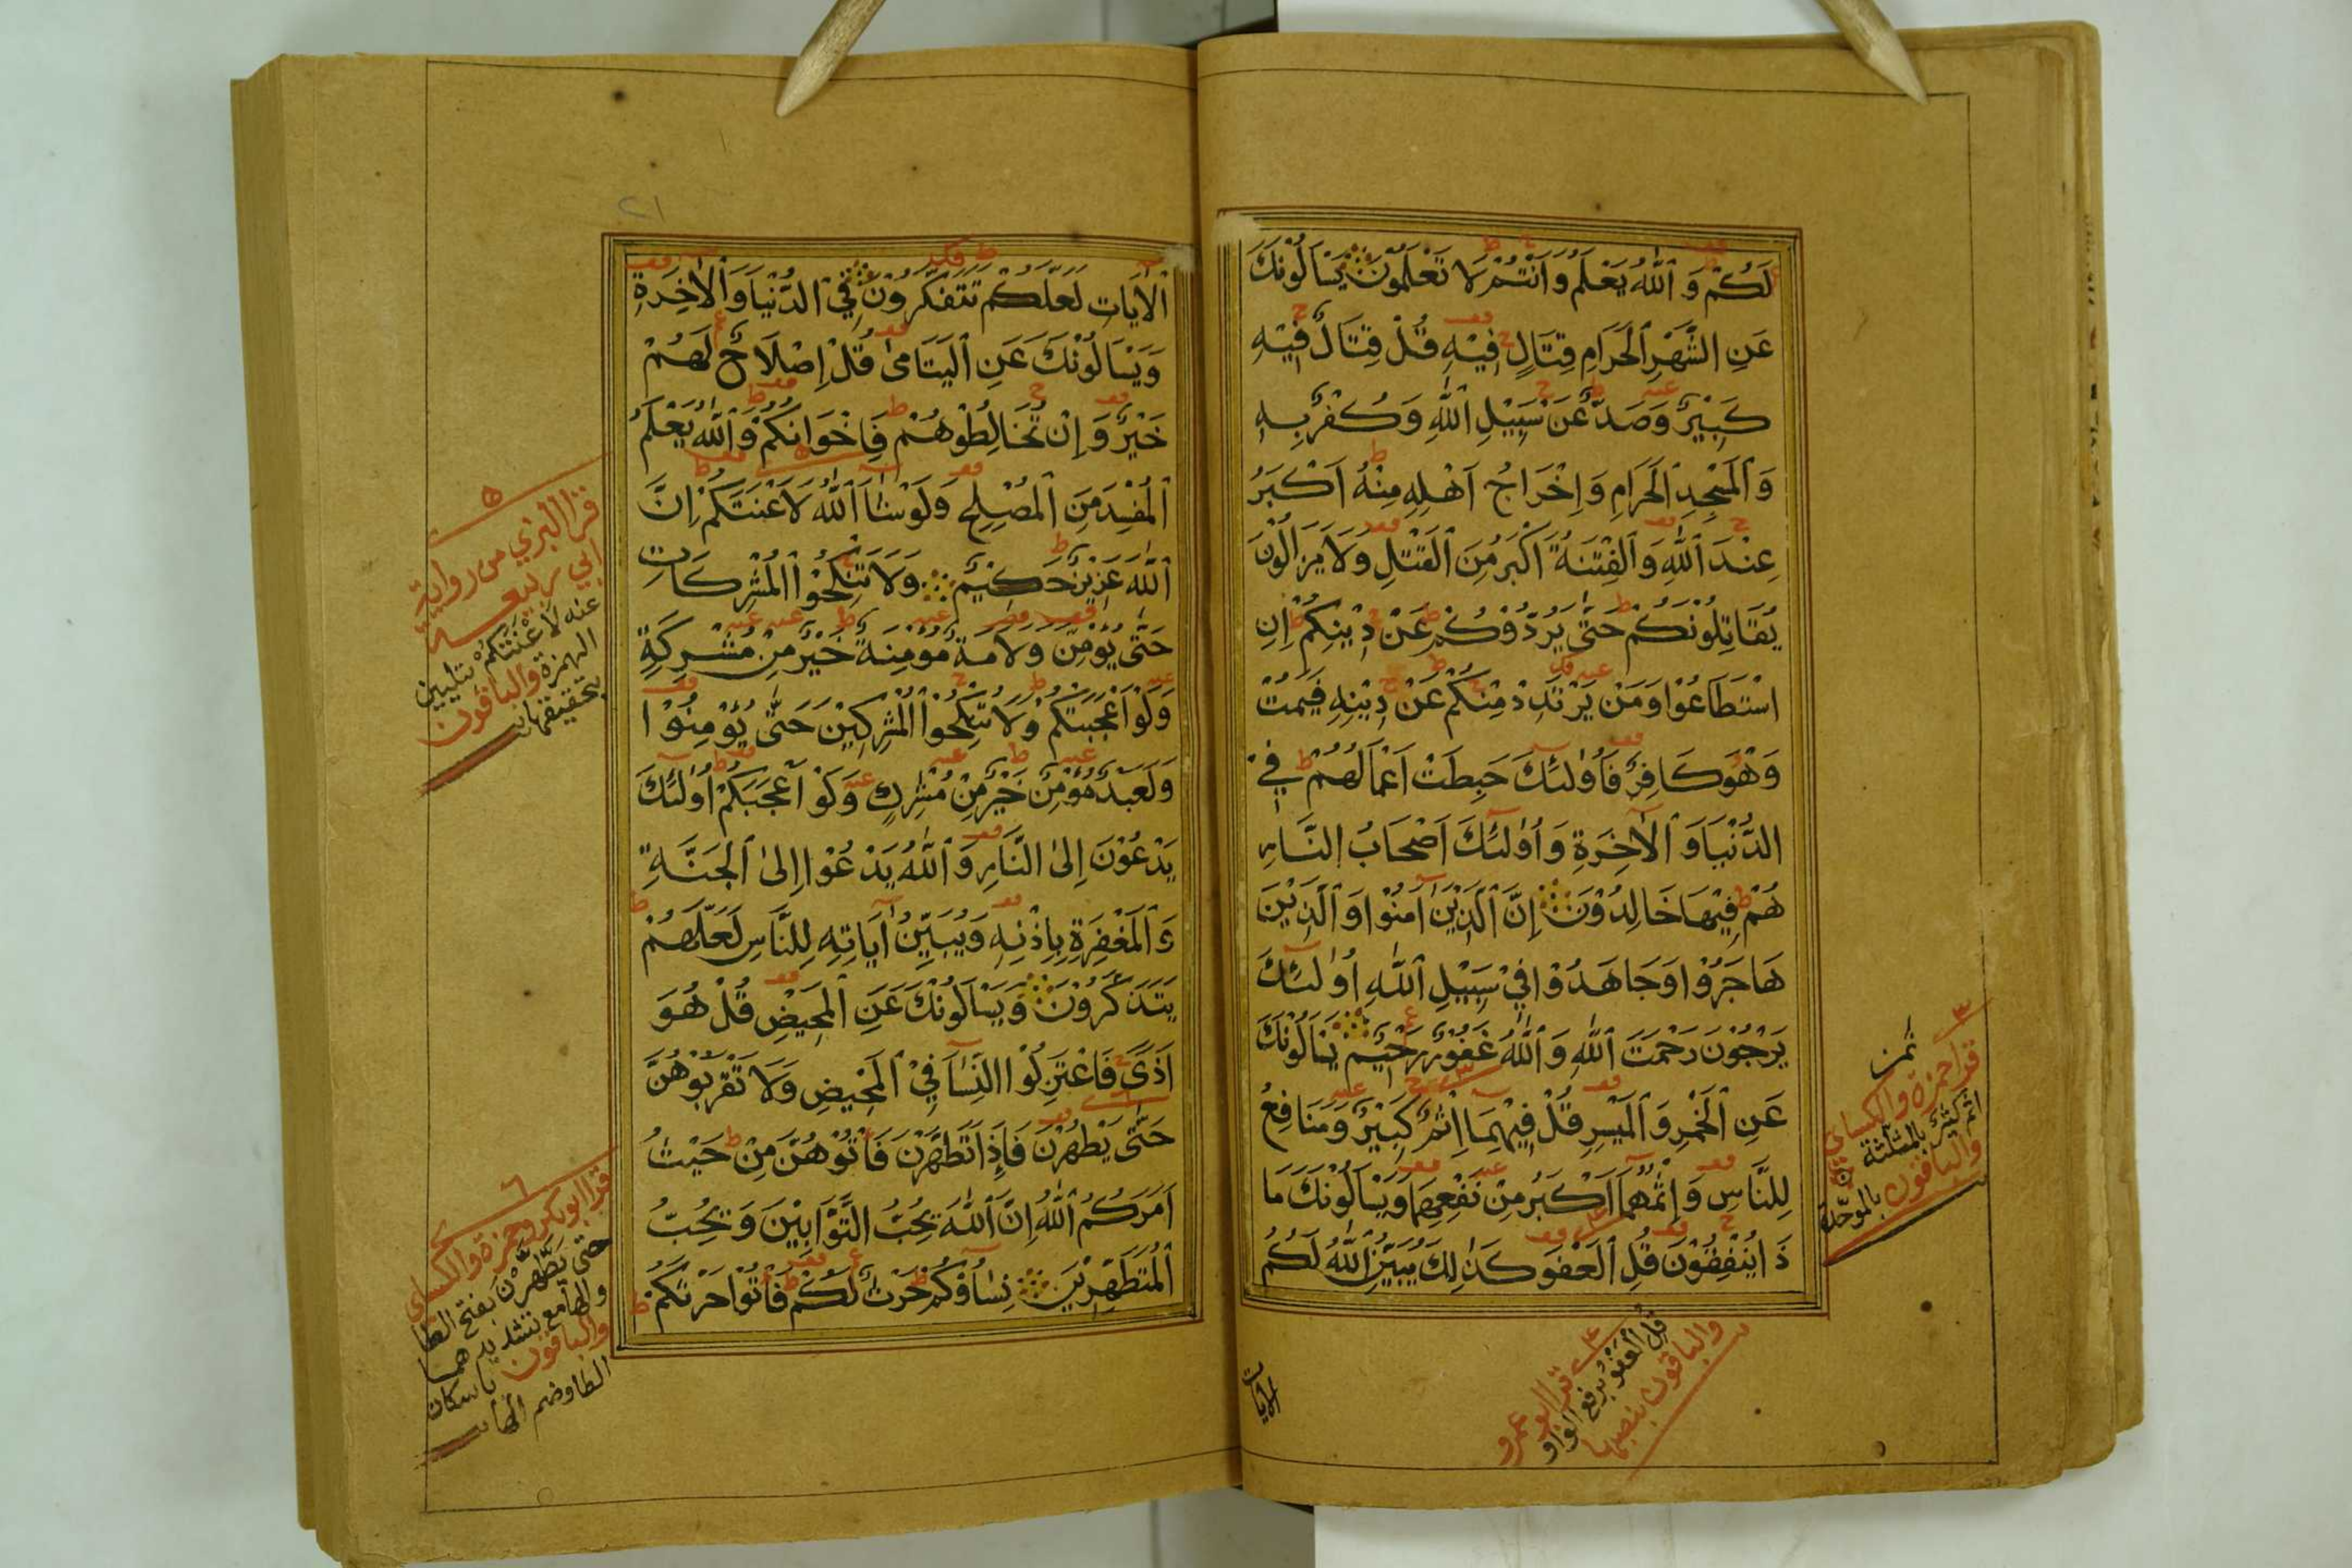 لَكُمْ وَاللّٰهُ يَعْلَمُ وَاَنْتُمْ لَا تَعْلَمُوْنَ يَسْاَلُوْنَكَ
عَنِ الشَّهْرِ الْحَرَامِ قِتَالٍ فِيْهِ قُلْ قِتَالٌ فِيْهِ
كَبِيْرٌ وَصَدٌّ عَنْ سَبِيْلِ اللّٰهِ وَكُفْرٌ بِهٖ
وَالْمَسْجِدِ الْحَرَامِ وَاِخْرَاجُ اَهْلِهٖ مِنْهُ اَكْبَرُ
عِنْدَ اللّٰهِ وَالْفِتْنَةُ اَكْبَرُ مِنَ الْقَتْلِ وَلَا يَزَالُوْنَ
يُقَاتِلُوْنَكُمْ حَتّٰى يَرُدُّوْكُمْ عَنْ دِيْنِكُمْ اِنِ
اسْتَطَاعُوْا وَمَنْ يَرْتَدِدْ مِنْكُمْ عَنْ دِيْنِهٖ فَيَمُتْ
وَهُوَ كَافِرٌ فَاُولٰئِكَ حَبِطَتْ اَعْمَالُهُمْ فِي
الدُّنْيَا وَالْاٰخِرَةِ وَاُولٰئِكَ اَصْحَابُ النَّارِ
هُمْ فِيْهَا خَالِدُوْنَ اِنَّ الَّذِيْنَ اٰمَنُوْا وَالَّذِيْنَ
هَاجَرُوْا وَجَاهَدُوْا فِيْ سَبِيْلِ اللّٰهِ اُولٰئِكَ
يَرْجُوْنَ رَحْمَتَ اللّٰهِ وَاللّٰهُ غَفُوْرٌ رَحِيْمٌ يَسْاَلُوْنَكَ
عَنِ الْخَمْرِ وَالْمَيْسِرِ قُلْ فِيْهِمَا اِثْمٌ كَبِيْرٌ وَمَنَافِعُ
لِلنَّاسِ وَاِثْمُهُمَا اَكْبَرُ مِنْ نَفْعِهِمَا وَيَسْاَلُوْنَكَ مَا
ذَا يُنْفِقُوْنَ قُلِ الْعَفْوَ كَذٰلِكَ يُبَيِّنُ اللّٰهُ لَكُمُ
ثمن
٣
قرا حمزة والكسائي
اثم كثير بالمثلثة
والباقون بالموحدة
٤
قرا ابو عمرو
قل العفوُ برفع الواو
والباقون بنصبها
الايات
٢١
الْاٰيَاتِ لَعَلَّكُمْ تَتَفَكَّرُوْنَ فِي الدُّنْيَا وَالْاٰخِرَةِ
وَيَسْاَلُوْنَكَ عَنِ الْيَتَامٰى قُلْ اِصْلَاحٌ لَهُمْ
خَيْرٌ وَاِنْ تُخَالِطُوْهُمْ فَاِخْوَانُكُمْ وَاللّٰهُ يَعْلَمُ
الْمُفْسِدَ مِنَ الْمُصْلِحِ وَلَوْ شَاۤءَ اللّٰهُ لَاَعْنَتَكُمْ اِنَّ
اللّٰهَ عَزِيْزٌ حَكِيْمٌ وَلَا تَنْكِحُوا الْمُشْرِكَاتِ
حَتّٰى يُؤْمِنَّ وَلَاَمَةٌ مُؤْمِنَةٌ خَيْرٌ مِنْ مُشْرِكَةٍ
وَلَوْ اَعْجَبَتْكُمْ وَلَا تُنْكِحُوا الْمُشْرِكِيْنَ حَتّٰى يُؤْمِنُوْا
وَلَعَبْدٌ مُؤْمِنٌ خَيْرٌ مِنْ مُشْرِكٍ وَلَوْ اَعْجَبَكُمْ اُولٰئِكَ
يَدْعُوْنَ اِلَى النَّارِ وَاللّٰهُ يَدْعُوْا اِلَى الْجَنَّةِ
وَالْمَغْفِرَةِ بِاِذْنِهٖ وَيُبَيِّنُ اٰيَاتِهٖ لِلنَّاسِ لَعَلَّهُمْ
يَتَذَكَّرُوْنَ وَيَسْاَلُوْنَكَ عَنِ الْمَحِيْضِ قُلْ هُوَ
اَذًى فَاعْتَزِلُوا النِّسَاۤءَ فِي الْمَحِيْضِ وَلَا تَقْرَبُوْهُنَّ
حَتّٰى يَطْهُرْنَ فَاِذَا تَطَهَّرْنَ فَأْتُوْهُنَّ مِنْ حَيْثُ
اَمَرَكُمُ اللّٰهُ اِنَّ اللّٰهَ يُحِبُّ التَّوَّابِيْنَ وَيُحِبُّ
الْمُتَطَهِّرِيْنَ نِسَاؤُكُمْ حَرْثٌ لَكُمْ فَأْتُوْا حَرْثَكُمْ
٥
قرا البزي من رواية
ابي ربيعة
عنه لاعنتكم بتليين
الهمزة والباقون
بتحقيقها
٦
قرا ابو بكر وحمزة والكسائي
حتى يَطَّهَّرْن بفتح الطا
والها مع تشديدهما
والباقون باسكان
الطا وضم الها